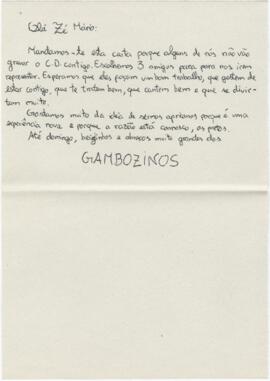 Olá Zé Mário:
Mandamos-te esta carta porque alguns de nós não vão
gravar o C.D. contigo. Escolhemos 3 amigos para para nos irem
representar. Esperamos que eles façam um bom trabalho, que gostem de
estar contigo, que te tratem bem, que cantem bem e que se divir-
tam muito.
Gostamos muito da ideia de sermos
porque é uma
experiência nova e porque a razão está connosco, os putos.
Até domingo, beijinhos e abraços muito grandes dos
GAMBOZINOS